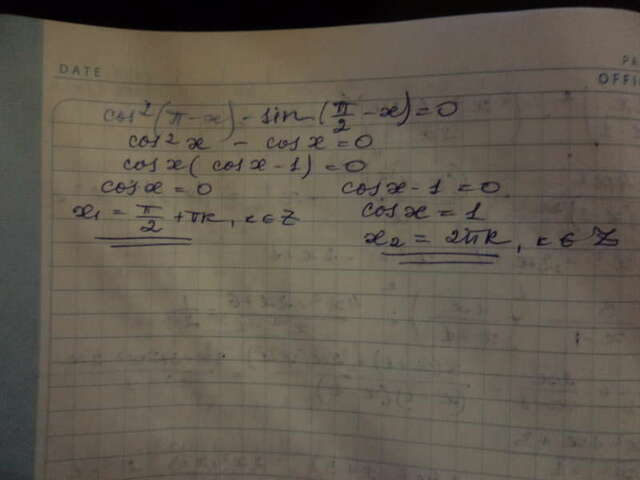 DATE
PA
OFFI
cos²(π-x) - sin(π/2 - x) = 0
cos²x - cosx = 0
cosx(cosx-1) = 0
cosx = 0 cosx-1 = 0
x₁ = π/2 + πk, k∈Z cosx = 1
x₂ = 2πk, k∈Z